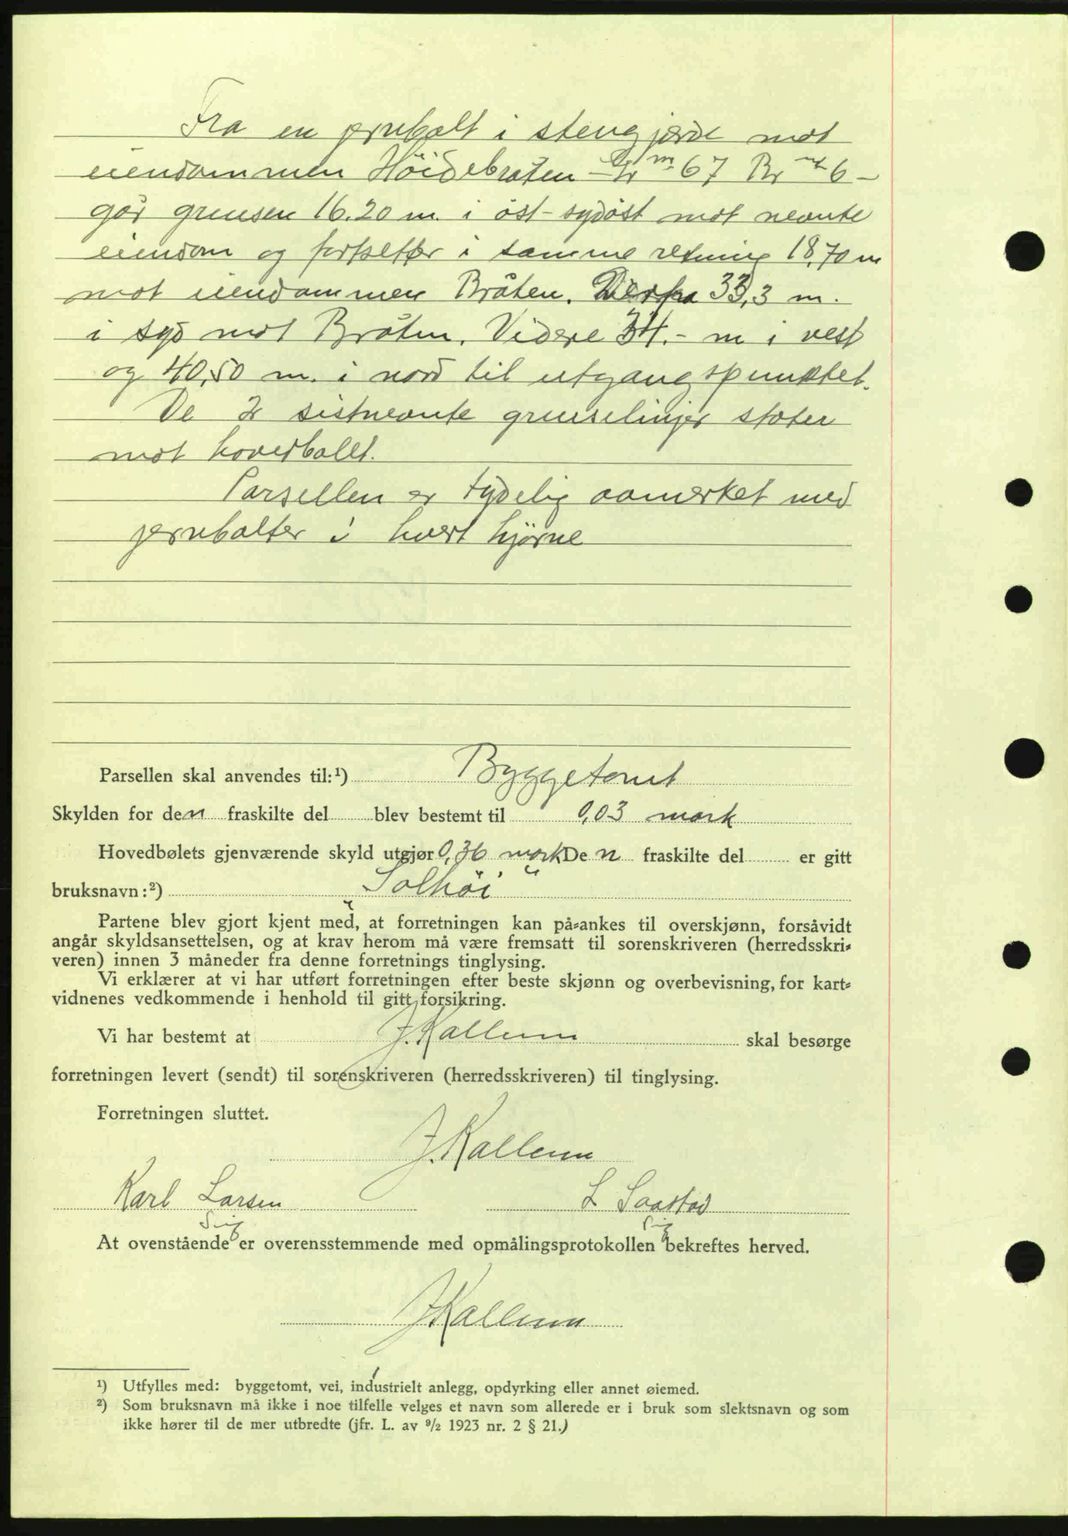 Fra en jernbolt i stengjerde mot
eiendommen Höidebråten Gr nr 67 Br nr 6 -
går grensen 16.20 m. i öst-sydöst mot nevnte
eiendom og fortsetter i samme retning 18,70 m
mot eiendommen Bråten. Derfra 33,3 m.
i syd mot Bråten. Videre 34.- m i vest
og 40,50 m. i nord til utgangspunktet.
De 2 sistnevnte grenselinjer stöter
mot hovedbölet.
Parsellen er tydelig avmerket med
jernbolter i hvert hjörne
Parsellen skal anvendes til:¹) Byggetomt
Skylden for den fraskilte del blev bestemt til 0,03 mark
Hovedbølets gjenværende skyld utgjør 0,36 mark De n fraskilte del er gitt
bruksnavn:²) „Solhöi"
Partene blev gjort kjent med, at forretningen kan på-ankes til overskjønn, forsåvidt
angår skyldsansettelsen, og at krav herom må være fremsatt til sorenskriveren (herredsskri-
veren) innen 3 måneder fra denne forretnings tinglysing.
Vi erklærer at vi har utført forretningen efter beste skjønn og overbevisning, for kart-
vidnenes vedkommende i henhold til gitt forsikring.
Vi har bestemt at J. Kallerum skal besørge
forretningen levert (sendt) til sorenskriveren (herredsskriveren) til tinglysing.
Forretningen sluttet.
J. Kallerum
Karl Larsen L Saastad
sig sig
At ovenstående er overensstemmende med opmålingsprotokollen bekreftes herved.
J. Kallerum
¹) Utfylles med: byggetomt, vei, industrielt anlegg, opdyrking eller annet øiemed.
²) Som bruksnavn må ikke i noe tilfelle velges et navn som allerede er i bruk som slektsnavn og som
ikke hører til de mer utbredte (jfr. L. av 9/2 1923 nr. 2 § 21.)